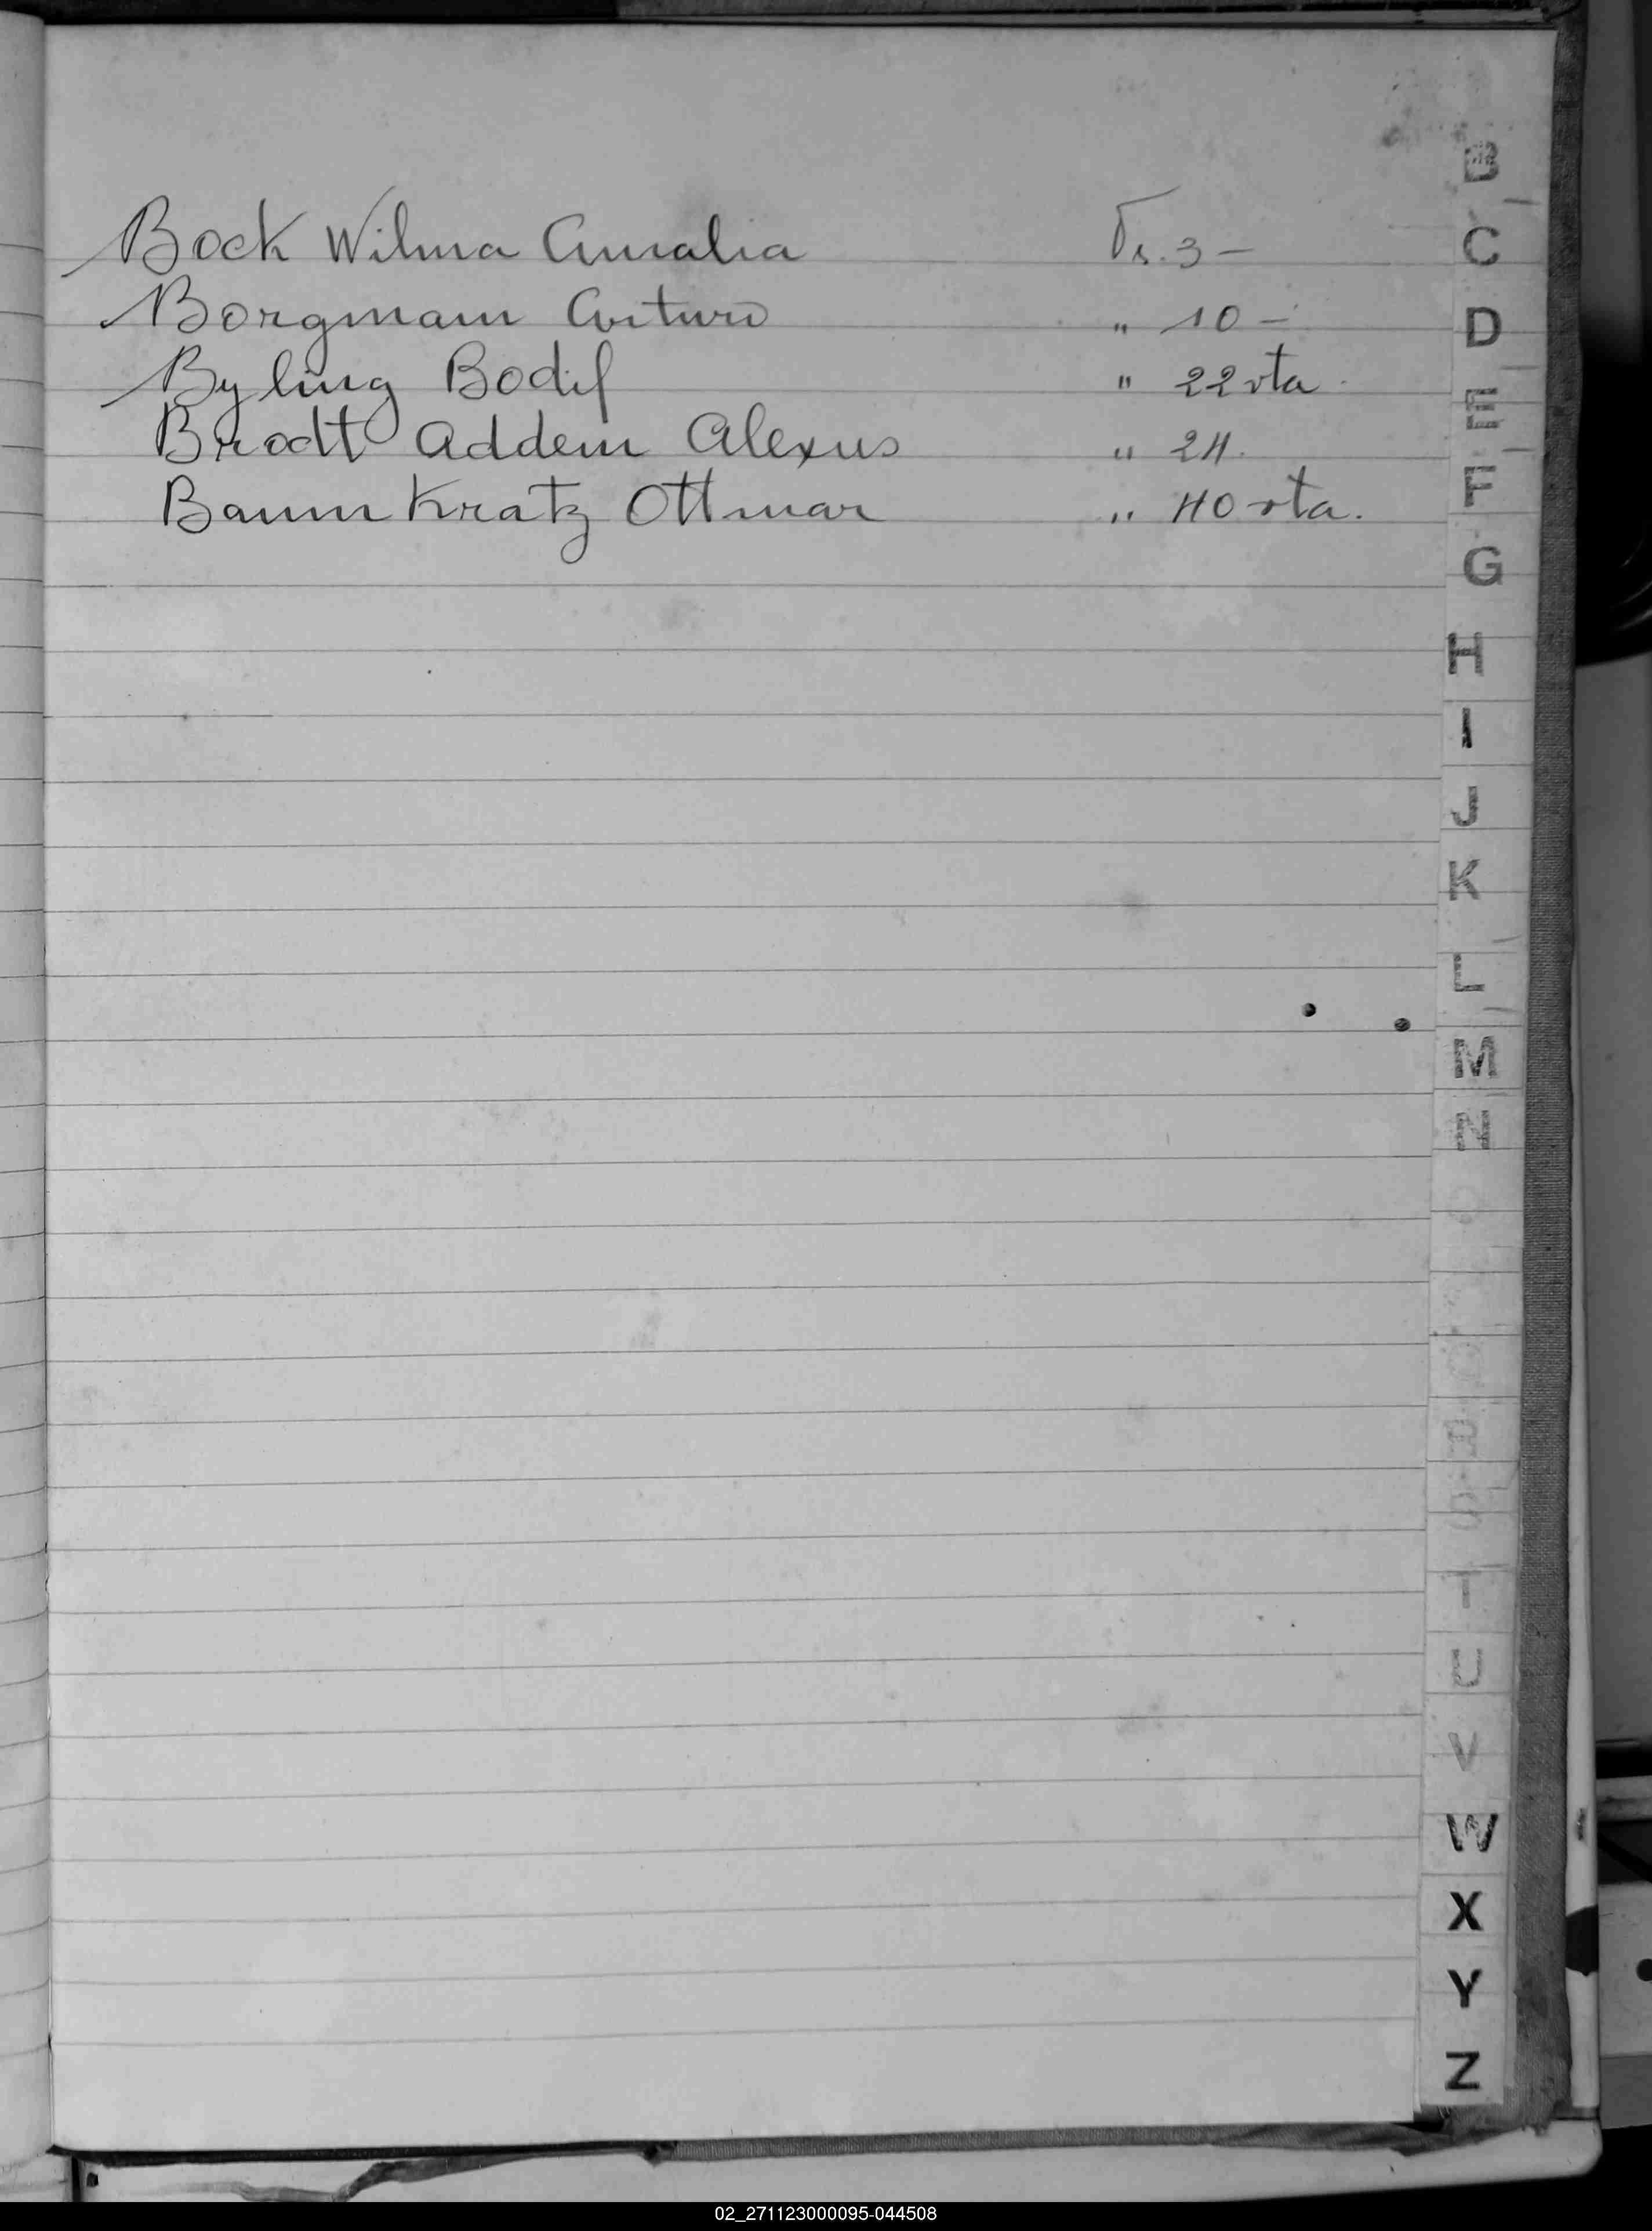 Bock Wilma Amalia Fs. 3 -
Borgmann Arturo " 10 -
Byling Bodil " 22 vta.
Brodt Addem Alexus " 24.
Baumkratz Ottmar " 40 vta.
B
C
D
E
F
G
H
I
J
K
L
M
N
O
R
S
T
U
V
W
X
Y
Z
02_271123000095-044508